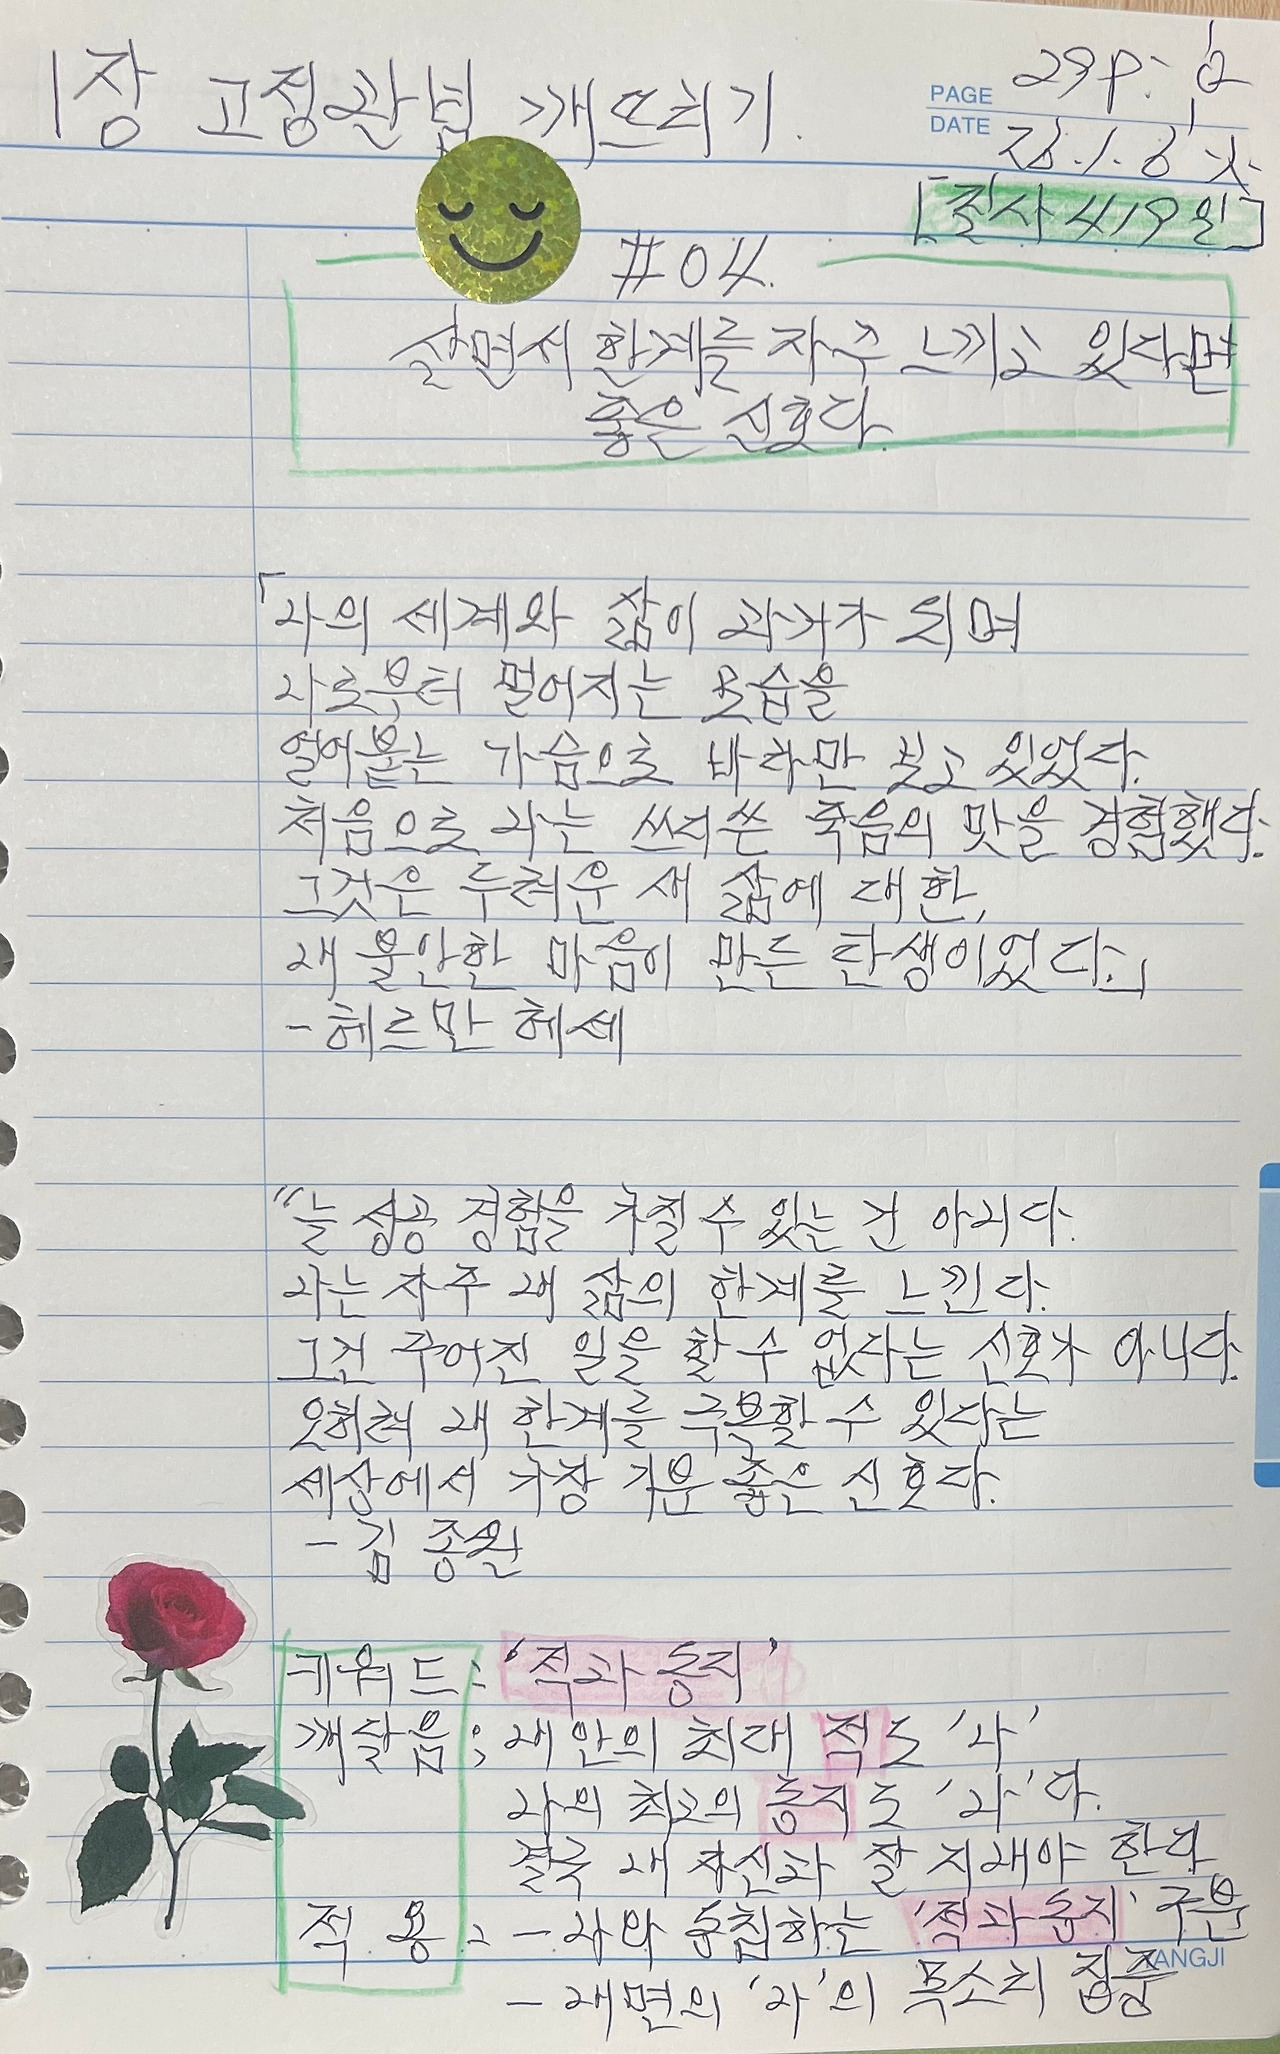 1장 고정관념 깨뜨리기.
PAGE 29p:
DATE 26.1.6 火
[필사 419일]
#04.
살면서 한계를 자주 느끼고 있다면
좋은 신호다.
「나의 세계와 삶이 과거가 되며
나로부터 멀어지는 모습을
얼어붙는 가슴으로 바라만 보고 있었다.
처음으로 나는 쓰라쓴 죽음의 맛을 경험했다.
그것은 두려운 새 삶에 대한,
내 불안한 마음이 만든 탄생이었다.」
- 헤르만 헤세
"늘 성공 경험을 가질 수 있는 건 아니다.
나는 자주 내 삶의 한계를 느낀다.
그건 주어진 일을 할 수 없다는 신호가 아니다.
오히려 내 한계를 극복할 수 있다는
세상에서 가장 기분 좋은 신호다.
- 김종원
키워드: '적과 동지'
깨달음: 내 안의 최대 적도 '나'
나의 최고의 동지도 '나'다.
결국 내 자신과 잘 지내야 한다
적용: - 나와 중첩하는 '적과 동지' 구분
- 내면의 '나'의 목소리 집중
YANGJI